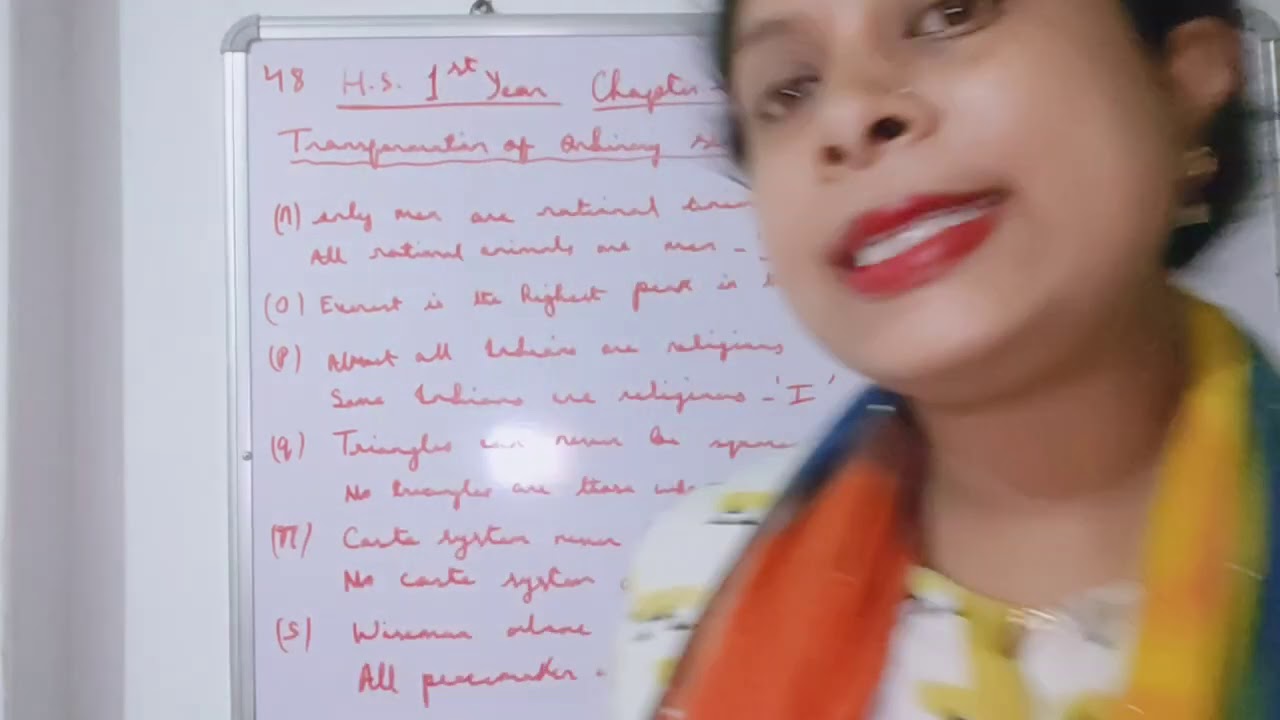 48 H.S. 1st Year Chapter
Transformation of Ordinary
(n) only men are rational
All rational animals are men -
(o) Everest is the highest peak in
(p) Almost all Indians are religious
Some Indians are religious - 'I'
(q) Triangles can never be square
No triangles are those
(r) Caste system never
No caste system
(s) Wiseman alone
All peacemaker